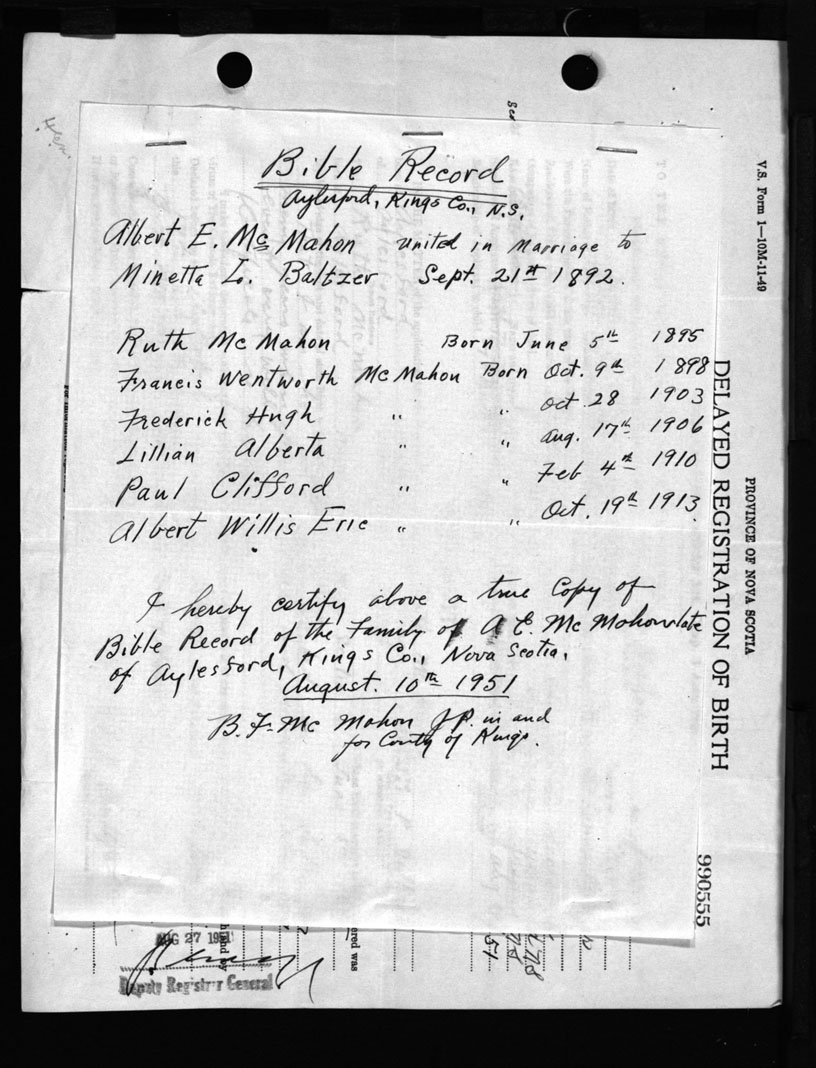 Bible Record
Aylesford, Kings Co., N.S.
Albert E. Mc Mahon united in Marriage to
Minetta L. Baltzer Sept. 21st 1892.
Ruth Mc Mahon Born June 5th 1895
Francis Wentworth Mc Mahon Born Oct. 9th 1898
Frederick Hugh " " Oct 28 1903
Lillian Alberta " " Aug. 17th 1906
Paul Clifford " " Feb 4th 1910
Albert Willis Eric " " Oct. 19th 1913.
I hereby certify above a true Copy of
Bible Record of the Family of A E. Mc Mahon late
of Aylesford, Kings Co., Nova Scotia,
August. 10th 1951
B. F. Mc Mahon J P. in and
for County of Kings.
V.S. Form 1—10M-11-49
PROVINCE OF NOVA SCOTIA
DELAYED REGISTRATION OF BIRTH
990555
AUG 27 1951
Deputy Registrar General
ered was
51